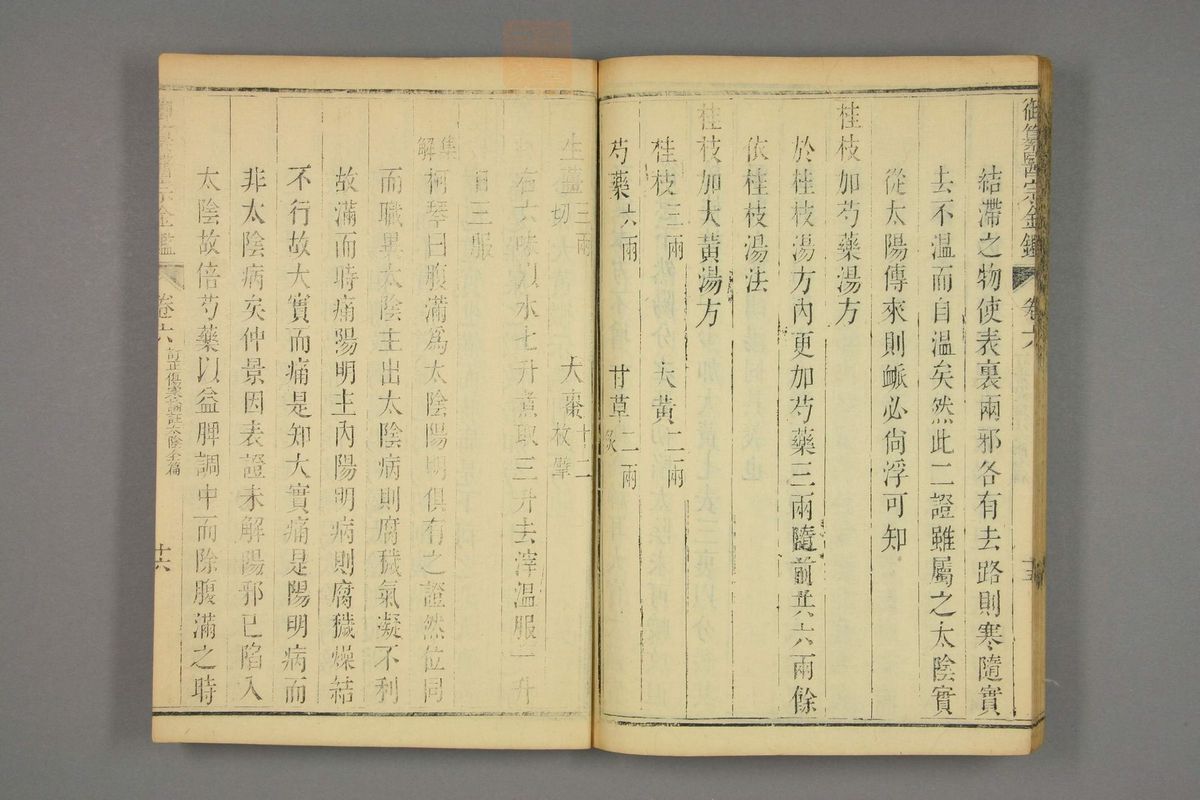 御纂醫宗金鑑 卷六 十五
結滯之物使表裏兩邪各有去路則寒隨實
去不溫而自溫矣然此二證雖屬之太陰實
從太陽傳來則脈必尙浮可知
桂枝加芍藥湯方
於桂枝湯方內更加芍藥三兩隨前共六兩餘
依桂枝湯法
桂枝加大黃湯方
桂枝三兩 大黃二兩
芍藥六兩 甘草二兩炙
生薑三兩切 大棗十二枚擘
右六味以水七升煮取三升去滓溫服一升
日三服
集解 柯琴曰腹滿爲太陰陽明俱有之證然位同
而職異太陰主出太陰病則腐穢氣凝不利
故滿而時痛陽明主內陽明病則腐穢燥結
不行故大實而痛是知大實痛是陽明病而
非太陰病矣仲景因表證未解陽邪已陷入
太陰故倍芍藥以益脾調中而除腹滿之時
御纂醫宗金鑑 卷六 訂正傷寒論註太陰全篇 十六